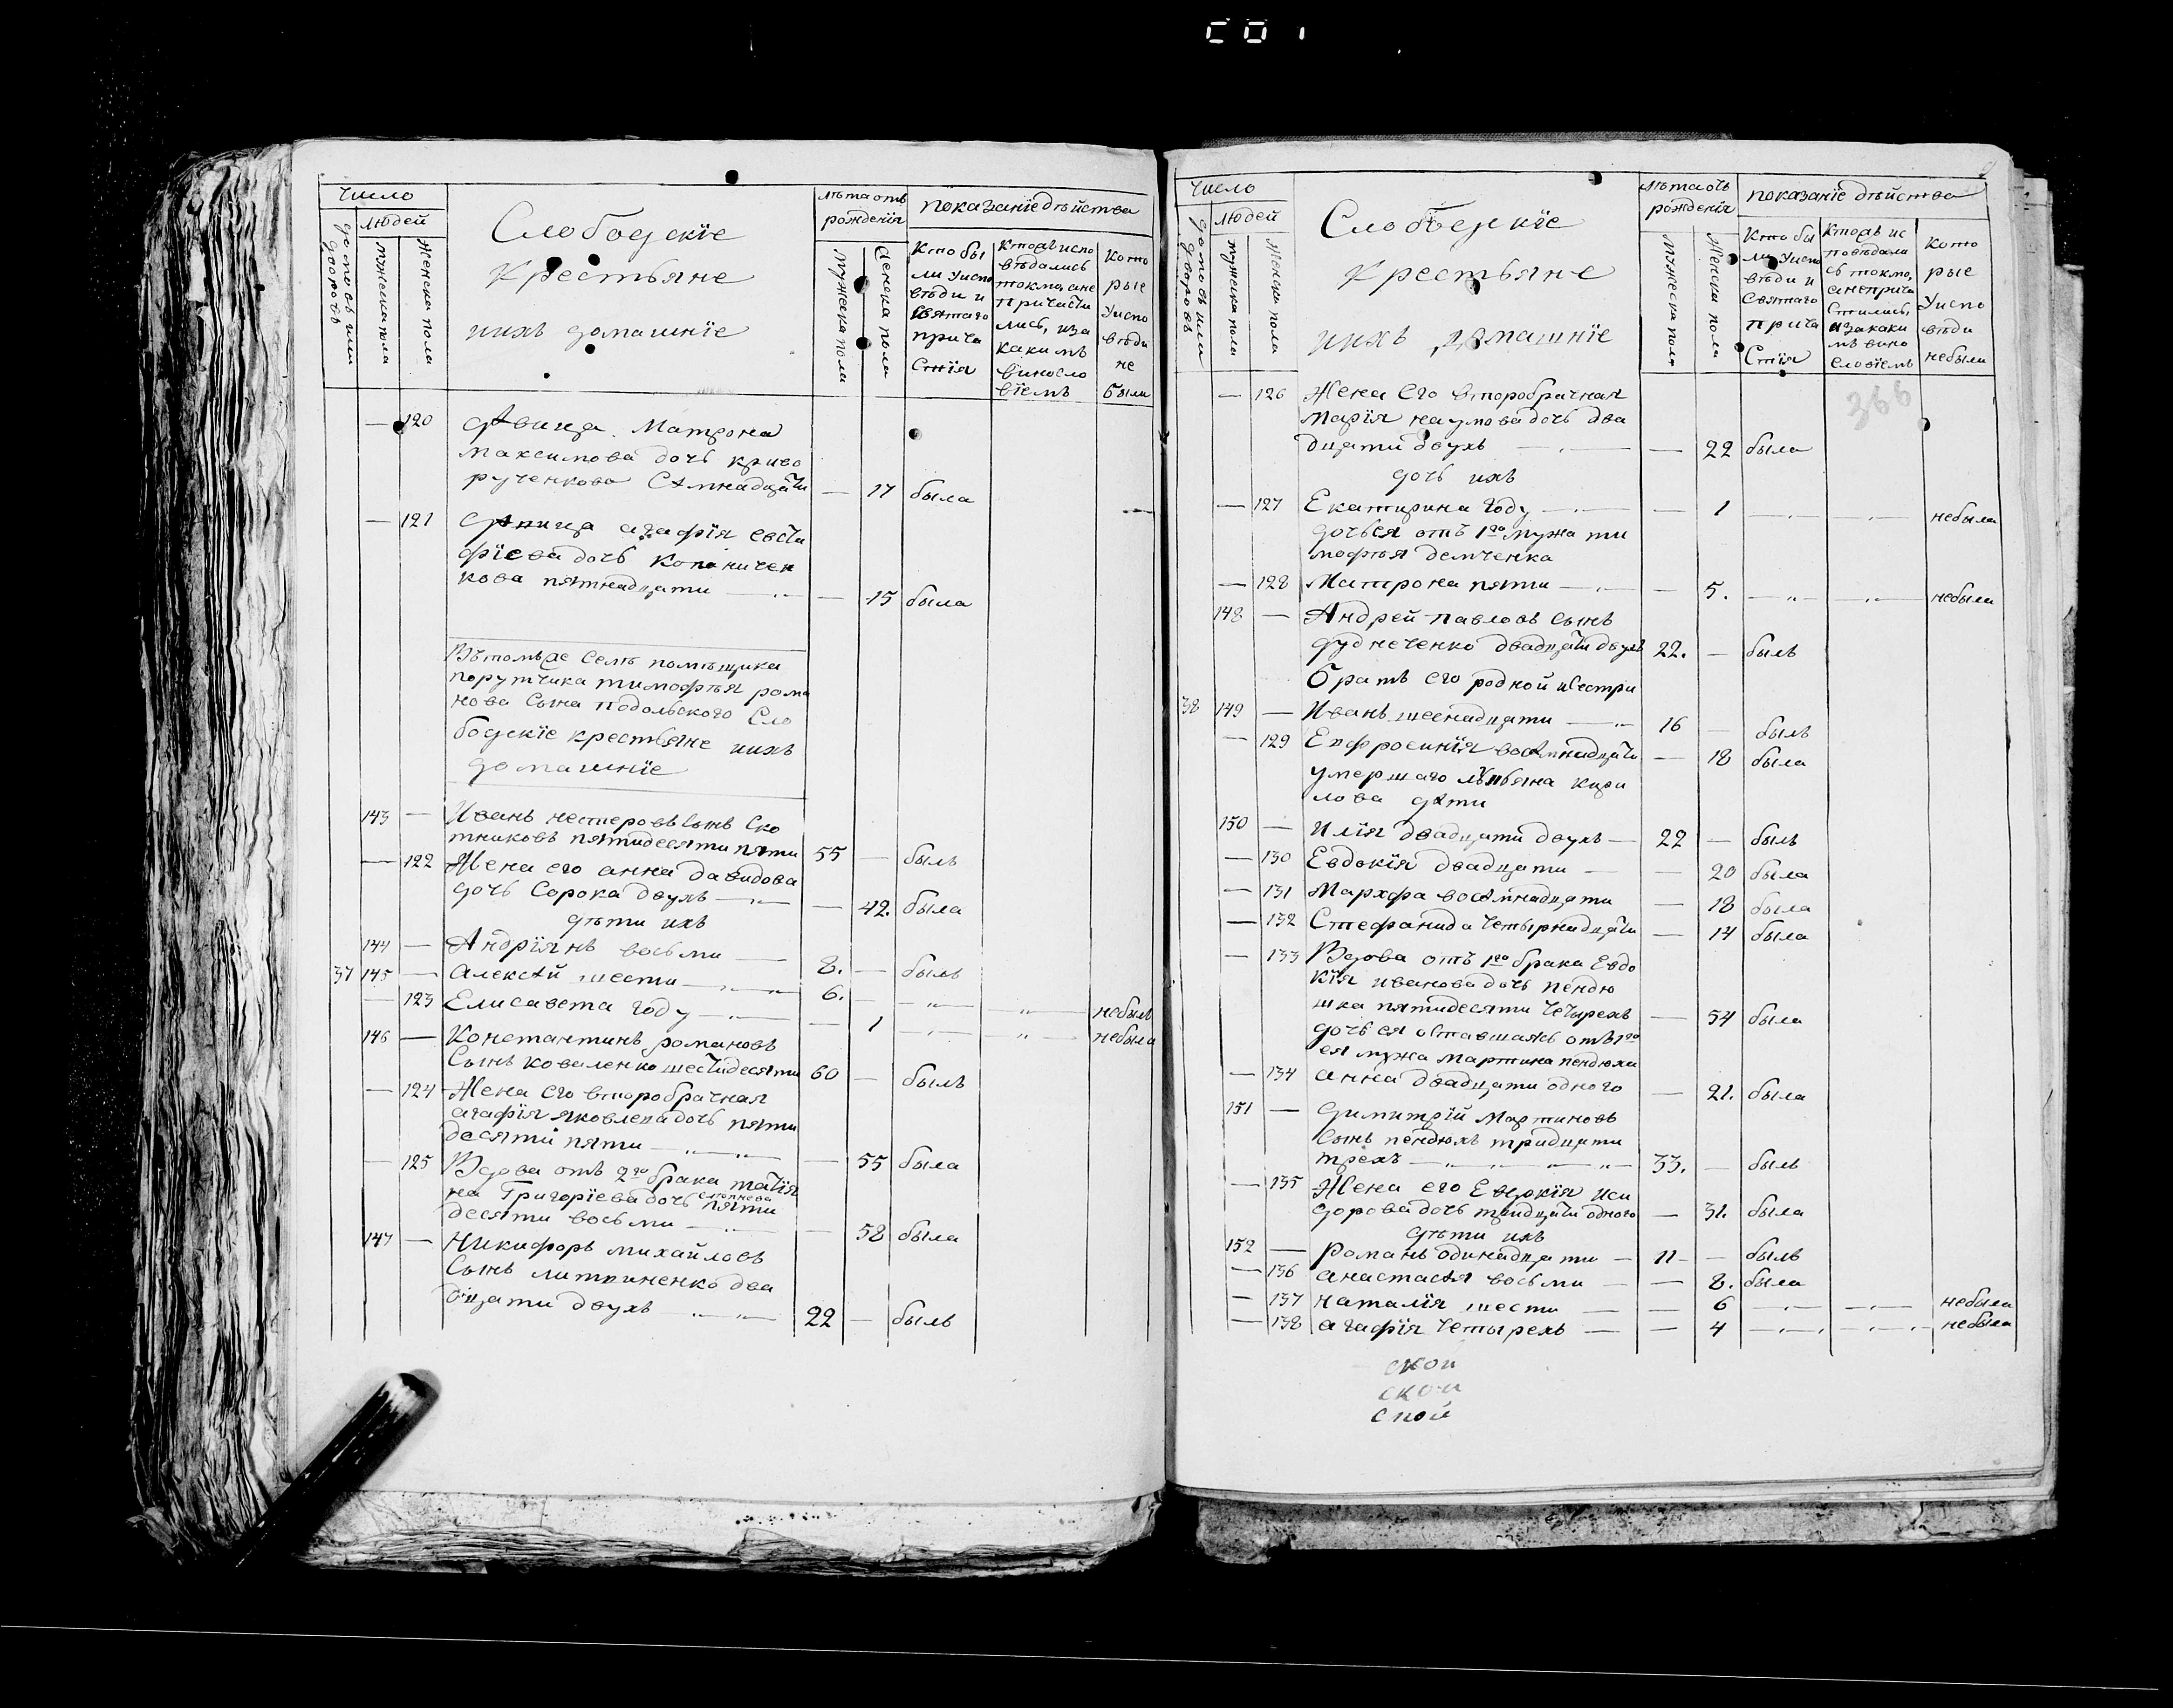 Число
людей
домовъ или дворовъ
мужеска пола
женска пола
Слободскїе
Крестьяне
ихъ домашнїе
лѣта отъ
рожденїя
мужеска пола
женска пола
показанїе дѣйства
Кто бы
ли у испо
вѣди и
святаго
прича
стїя
Кто исповѣдались
токмо, а не
причасти
лись, и за
какимъ
винесло
вїемъ
кото
рые
у испо
вѣди
не
были
— 120 дѣвица Матрона
максимова дочь криво
рученкова семнадцати — 17 была
— 121 дѣвица агафїя евста
фїева дочь Копаничен
кова пятнадцати — 15 была
Вътомъже селѣ помѣщика
порутчика тимофѣя рома
нова сына подольского Сло
бодскїе крестьяне ихъ
домашнїе
143 — Иванъ нестеровъ сынъ Ско
тниковъ пятидесяти пяти 55 — былъ
— 122 Жена его анна давидова
дочь Сорока двухъ — 42. была
дѣти ихъ
144 — Андрїянъ восьми 8. — былъ
37 145 — алексѣй шести 6. небылъ
— 123 Елисавета году — 1 небыла
146 — Константинъ романовъ
Сынъ коваленко шестидесяти 60 — былъ
— 124 Жена его второбрачная
агафїя яковлева дочь пяти
десяти пяти — 55 была
— 125 Вдова отъ 2го брака татїя
на Григорїева дочь пяти
десяти восьми — 58 была
147 — Никифоръ михайловъ
Сынъ литвиненко два
дцати двухъ 22 — былъ
Число
людей
домовъ или дворовъ
мужеска пола
женска пола
Слободскїе
Крестьяне
ихъ домашнїе
лѣта отъ
рожденїя
мужеска пола
женска пола
показанїе дѣйства
Кто бы
ли у испо
вѣди и
святаго
прича
стїя
Кто ис
повѣдали
сь токмо,
а неприча
стились,
и за каки
мъ вино
словїемъ
кото
рые
у испо
вѣди
небыли
366
— 126 Жена его второбрачная
марїя наумова дочь два
дцати двухъ — 22 была
дочь ихъ
— 127 Екатирина году — 1 небыла
дочь ея отъ 1го мужа ти
мофѣя демченка
— 128 Матрона пяти — 5. небыла
148 — Андрей павловъ сынъ
дудниченко двадцати двухъ 22. — былъ
братъ его родной и сестра
38 149 — Иванъ шеснадцати 16 — былъ
— 129 Епфросинїя восѣмнадцати — 18 была
умершаго кири
лова дѣти
150 — Илїя двадцати двухъ 22 — былъ
— 130 Евдокїя двадцати — 20 была
— 131 Мархфа восѣмнадцати — 18 была
— 132 Стефанида четырнадцати — 14 была
— 133 Вдова отъ 1го брака Евдо
кїя иванова дочь пендю
шка пятидесяти четырехъ — 54 была
дочь ея оставшаясь отъ 1го
ея мужа мартина пендюха
— 134 анна двадцати одного — 21. была
151 — димитрїй мартиновъ
Сынъ пендюхъ тридцати
трехъ 33. — былъ
— 135 Жена его Евдокїя иси
дорова дочь тридцати одного — 31. была
дѣти ихъ
152 — романъ одинадцати 11 — былъ
— 136 анастасѣя восьми — 8. была
— 137 наталїя шести — 6 небыла
— 138 агафїя четырехъ — 4 небыла
ской
ской